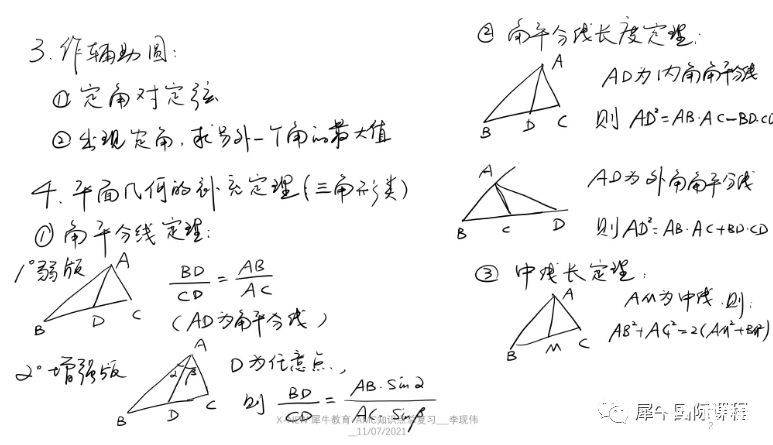 3. 作辅助圆:
① 定角对定弦
② 出现定角, 求另外一个角的最大值
4. 平面几何的补充定理(三角形类)
① 角平分线定理:
1° 弱版
A
B
D
C
BD/CD = AB/AC
(AD为角平分线)
2° 增强版
A
α β
B
D
C
D为任意点,
则 BD/CD = AB·Sinα/AC·Sinβ
② 角平分线长度定理:
A
B
D
C
AD为内角角平分线
则 AD²=AB·AC-BD·CD
A
B
C
D
AD为外角角平分线
则AD²=AB·AC+BD·CD
③ 中线长定理:
A
B
M
C
AM为中线,则:
AB²+AC²=2(AM²+BM²)
犀牛教育
知识点总复习__李现伟
__11/07/2021
犀牛国际课程
2